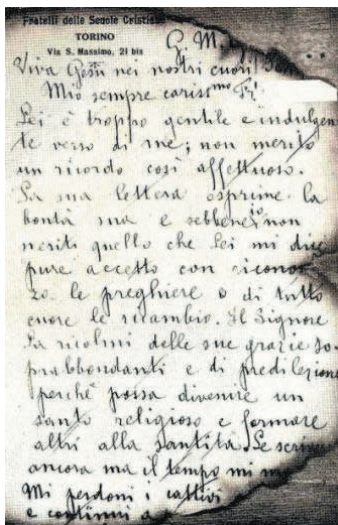 Fratelli delle Scuole Cristiane
TORINO
Via S. Massimo, 21 bis
G. M.
Viva Gesù nei nostri cuori!
Mio sempre cariss^mo Fr.
Lei è troppo gentile e indulgen
te verso di me; non merito
un ricordo così affettuoso.
La sua lettera esprime la
bontà sua e sebbene io non
meriti quello che Lei mi dice
pure accetto con ricono
za le preghiere e di tutto
cuore le ricambio. Il Signore
La ricolmi delle sue grazie so
prabbondanti e di predilezione
perchè possa divenire un
santo religioso e formare
altri alla santità. Le scriverei
ancora ma il tempo mi m
Mi perdoni i cattivi
e continui a